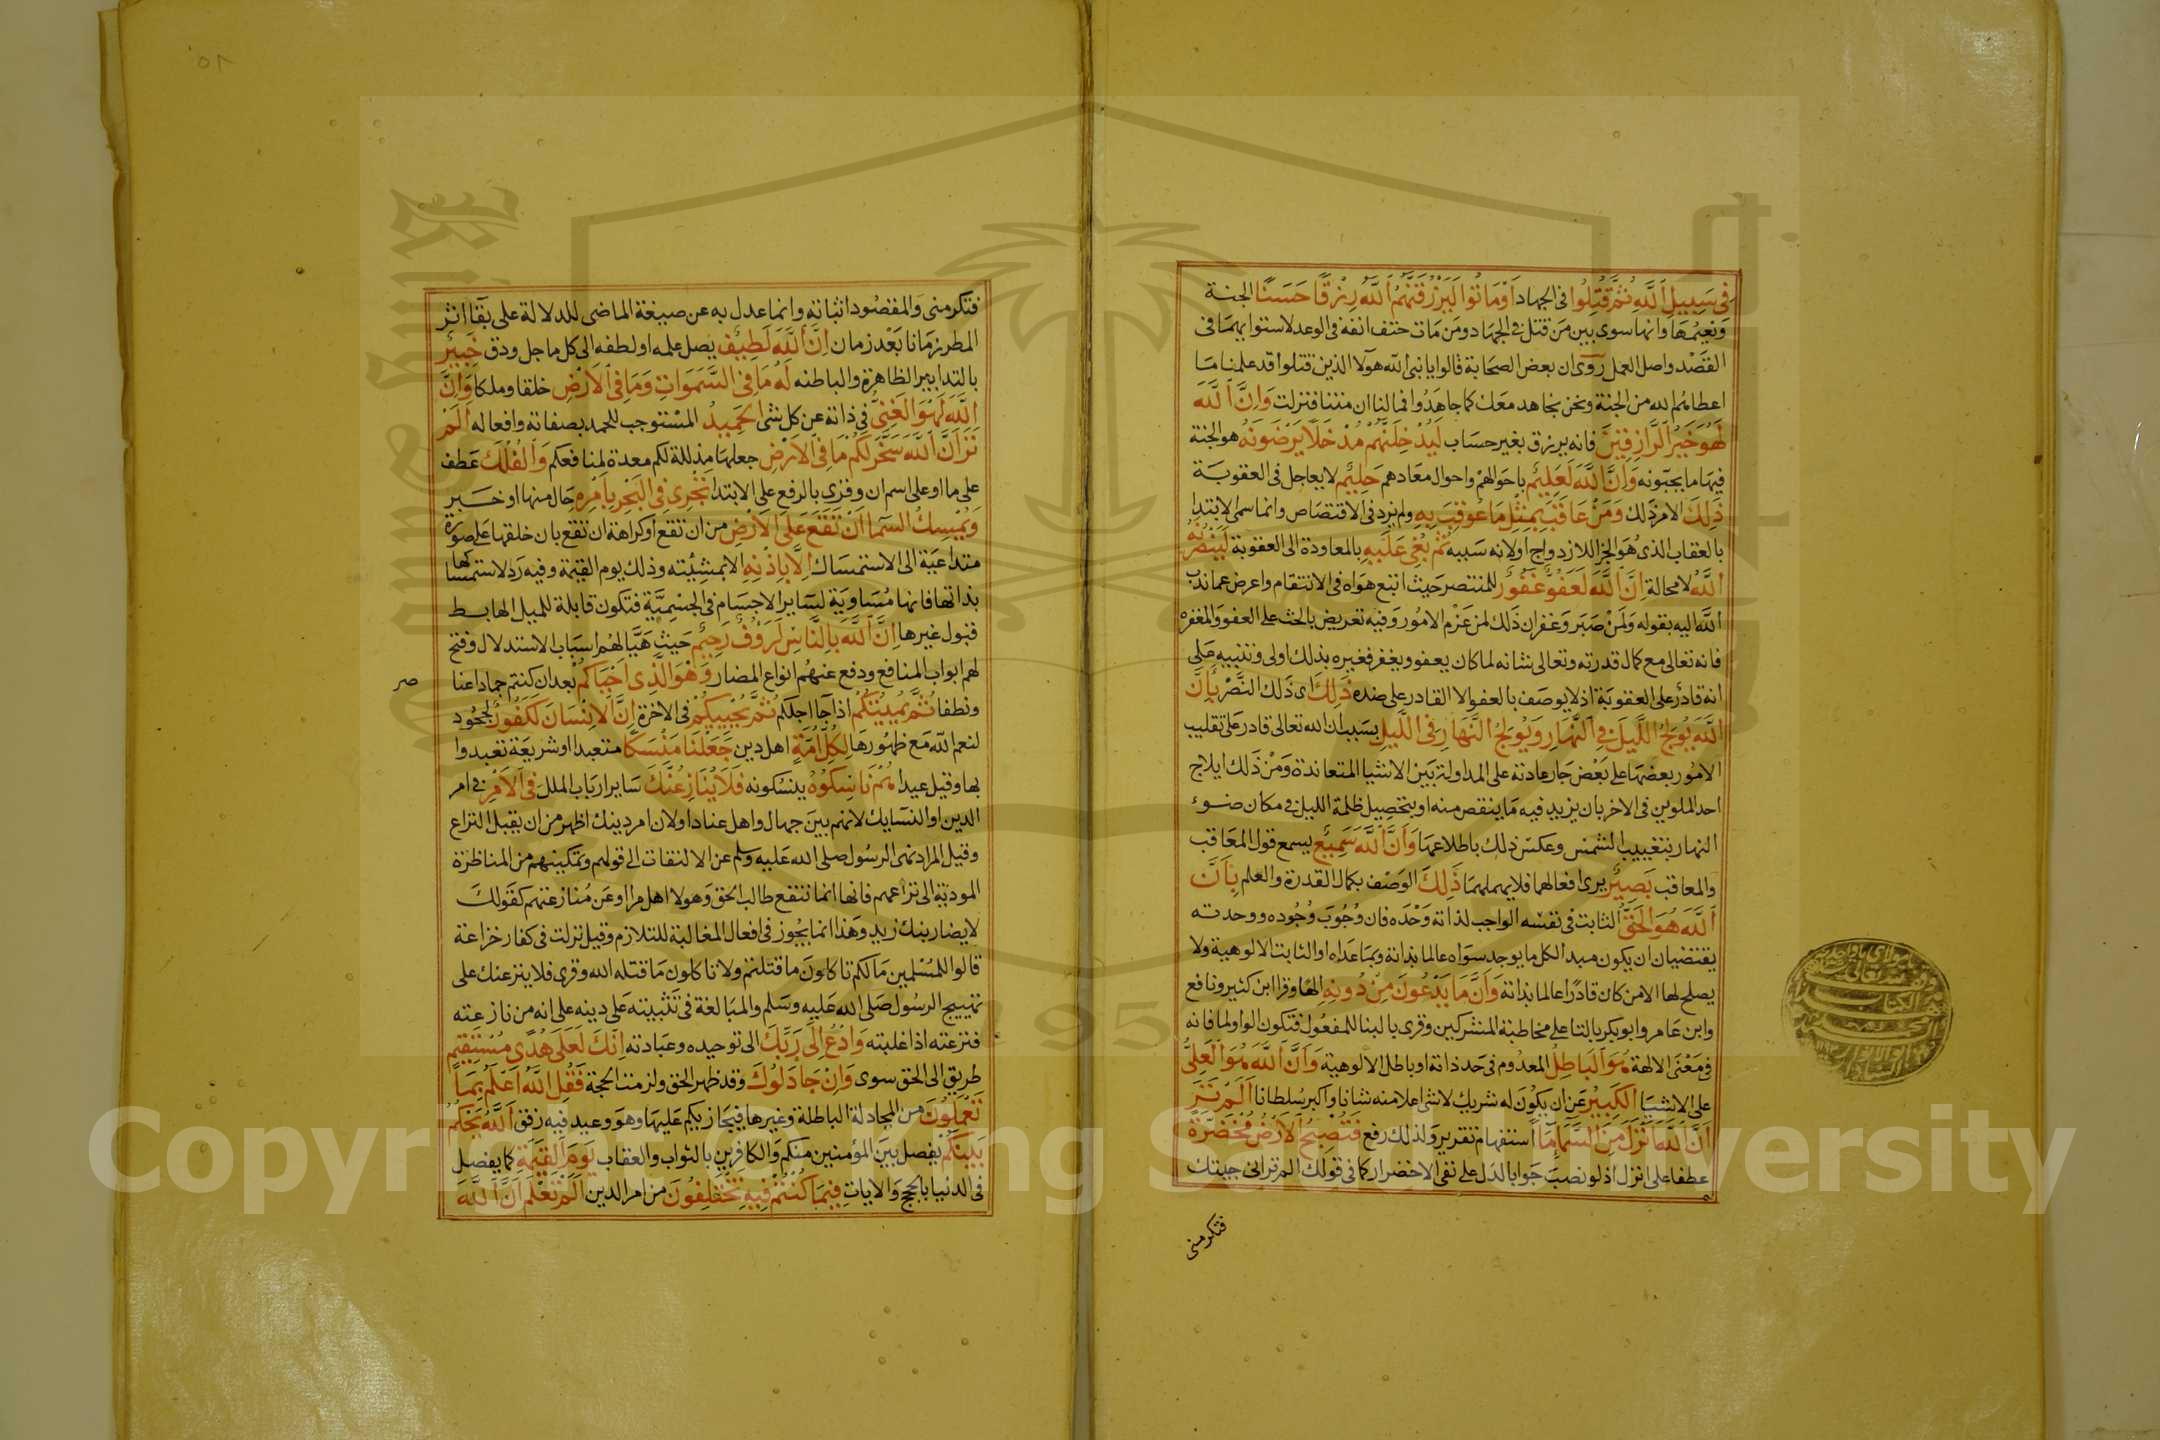 فى سبيل الله ثم قتلوا فى الجهاد او ماتوا ليرزقنهم الله رزقا حسنا الجنة
ونعيمها وانما سوى بين من قتل فى الجهاد ومن مات حتف انفه فى الوعد لاستوائهما فى
القصد واصل العمل روى ان بعض الصحابة قالوا يا نبى الله هولا الذين قتلوا قد علمنا ما
اعطاهم الله من الجنة ونحن نجاهد معك كما جاهدوا فما لنا ان متنا فنزلت وان الله
لهو خير الرازقين فانه يرزق بغير حساب ليدخلنهم مدخلا يرضونه هو الجنة
فيها ما يحبونه وان الله لعليم باحوالهم واحوال معادهم حليم لا يعاجل فى العقوبة
ذلك الامر ذلك ومن عاقب بمثل ما عوقب به ولم يزد فى الاقتصاص وانما سمى الابتدا
بالعقاب الذى هو الجزا للازدواج او لانه سببه ثم بغى عليه بالمعاودة الى العقوبة لينصرنه
الله لا محالة ان الله لعفو غفور للمنتصر حيث اتبع هواه فى الانتقام واعرض عما ندب
الله اليه بقوله ولمن صبر وغفر ان ذلك لمن عزم الامور وفيه تعريض بالحث على العفو والمغفره
فانه تعالى مع كمال قدرته وتعالى شانه لما كان يعفو ويغفر فغيره بذلك اولى وتنبيه على
انه قادر على العقوبة اذ لا يوصف بالعفو الا القادر على ضده ذلك اى ذلك النصر بان
الله يولج الليل فى النهار ويولج النهار فى الليل بسبب ان الله تعالى قادر على تقليب
الامور بعضها على بعض جار عادته على المداولة بين الاشيا المتعاندة ومن ذلك ايلاج
احد الملوين فى الاخر بان يزيد فيه ما ينقص منه او بتحصيل ظلمة الليل فى مكان ضوء
النهار بتغييب الشمس وعكس ذلك باطلاعها وان الله سميع يسمع قول المعاقب
والمعاقب بصير يرى افعالهما فلا يهملهما ذلك الوصف بكمال القدرة والعلم بان
الله هو الحق الثابت فى نفسه الواجب لذاته وحده فان وجوب وجوده ووحدته
يقتضيان ان يكون مبدا لكل ما يوجد سواه عالما بذاته وبما عداه او الثابت الالوهية ولا
يصلح لها الا من كان قادرا عالما بذاته وان ما يدعون من دونه الها وقرا ابن كثير ونافع
وابن عامر وابو بكر بالتا على مخاطبة المشركين وقرى بالبنا للمفعول فتكون الواو لما فانه
فى معنى الالهة هو الباطل المعدوم فى حد ذاته او باطل الالوهية وان الله هو العلى
على الاشيا الكبير عن ان يكون له شريك لا شى اعلا منه شانا واكبر سلطانا الم تر
ان الله انزل من السما ما استفهام تقرير ولذلك رفع فتصبح الارض مخضرة
عطفا على انزل اذ لو نصب جوابا لدل على نفى الاخضرار كما فى قولك الم تر انى جيتك
فتكرمنى
فتكرمنى والمقصود اثباته وانما عدل به عن صيغة الماضى للدلالة على بقا اثر
المطر زمانا بعد زمان ان الله لطيف يصل علمه او لطفه الى كل ما جل ودق خبير
بالتدابير الظاهرة والباطنه له ما فى السموات وما فى الارض خلقا وملكا وان
الله لهو الغنى فى ذاته عن كل شى الحميد المستوجب للحمد بصفاته وافعاله الم
تر ان الله سخر لكم ما فى الارض جعلها مذللة لكم معدة لمنافعكم والفلك عطف
على ما او على اسم ان وقرى بالرفع على الابتدا تجرى فى البحر بامره حال منها او خبر
ويمسك السما ان تقع على الارض من ان تقع او كراهة ان تقع بان خلقها على صورة
متداعية الى الاستمساك الا باذنه الا بمشيئته وذلك يوم القيمة وفيه رد لاستمساكها
بذاتها فانها مساوية لساير الاجسام فى الجسمية فتكون قابلة للميل الهابط
قبول غيرها ان الله بالناس لروف رحيم حيث هيا لهم اسباب الاستدلال وفتح
لهم ابواب المنافع ودفع عنهم انواع المضار وهو الذى احياكم بعد ان كنتم جمادا عنا
صر
ونطفا ثم يميتكم اذا جا اجلكم ثم يحييكم فى الاخرة ان الانسان لكفور لجحود
لنعم الله مع ظهورها لكل امة اهل دين جعلنا منسكا متعبدا او شريعة تعبدوا
بها وقيل عيدا هم ناسكوه ينسكونه فلا ينازعنك ساير ارباب الملل فى الامر فى امر
الدين او النسايك لانهم بين جهال واهل عناد او لان امر دينك اظهر من ان يقبل النزاع
وقيل المراد نهى الرسول صلى الله عليه وسلم عن الالتفات الى قولهم وتمكينهم من المناظرة
المودية الى نزاعهم فانها انما تنفع طالب الحق وهولا اهل مرا او عن منازعتهم كقولك
لا يضاربنك زيد وهذا انما يجوز فى افعال المغالبة للتلازم وقيل نزلت فى كفار خزاعة
قالوا للمسلمين ما لكم تاكلون ما قتلتم ولا تاكلون ما قتله الله وقرى فلا ينزعنك على
تهييج الرسول صلى الله عليه وسلم والمبالغة فى تثبيته على دينه على انه من نازعته
فنزعته اذا غلبته وادع الى ربك الى توحيده وعبادته انك لعلى هدى مستقيم
طريق الى الحق سوى وان جادلوك وقد ظهر الحق ولزمت الحجة فقل الله اعلم بما
تعملون من المجادلة الباطلة وغيرها فيجازيكم عليها وهو وعيد فيه رفق الله يحكم
بينكم يفصل بين المؤمنين منكم والكافرين بالثواب والعقاب يوم القيمة كما يفصل
فى الدنيا بالحجج والايات فيما كنتم فيه تختلفون من امر الدين الم تعلم ان الله
Copyright © King Saud University